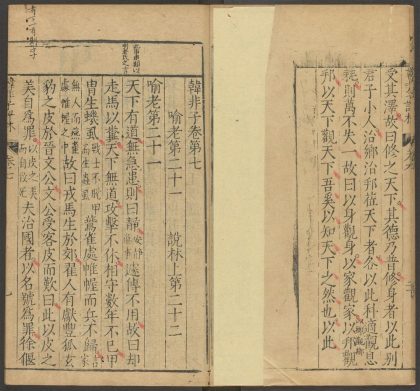 受其澤故曰修之天下其德乃普修身者以此別
君子小人治鄉治邦莅天下者各以此科適觀息
耗則萬不失一故曰以身觀身以家觀家以邦觀
邦以天下觀天下吾奚以知天下之然也以此
韓非子卷第七
喻老第二十一 說林上第二十二
喻老第二十一
天下有道無急患則曰靜遽傳不用故曰却
走馬以糞天下無道攻擊不休相守數年不已甲
胄生蟣虱鷰雀處帷幄而兵不歸
故曰戎馬生於郊翟人有獻豐狐玄
豹之皮於晉文公文公受客皮而歎曰此以皮之
美自為罪夫治國者以名號為罪徐偃